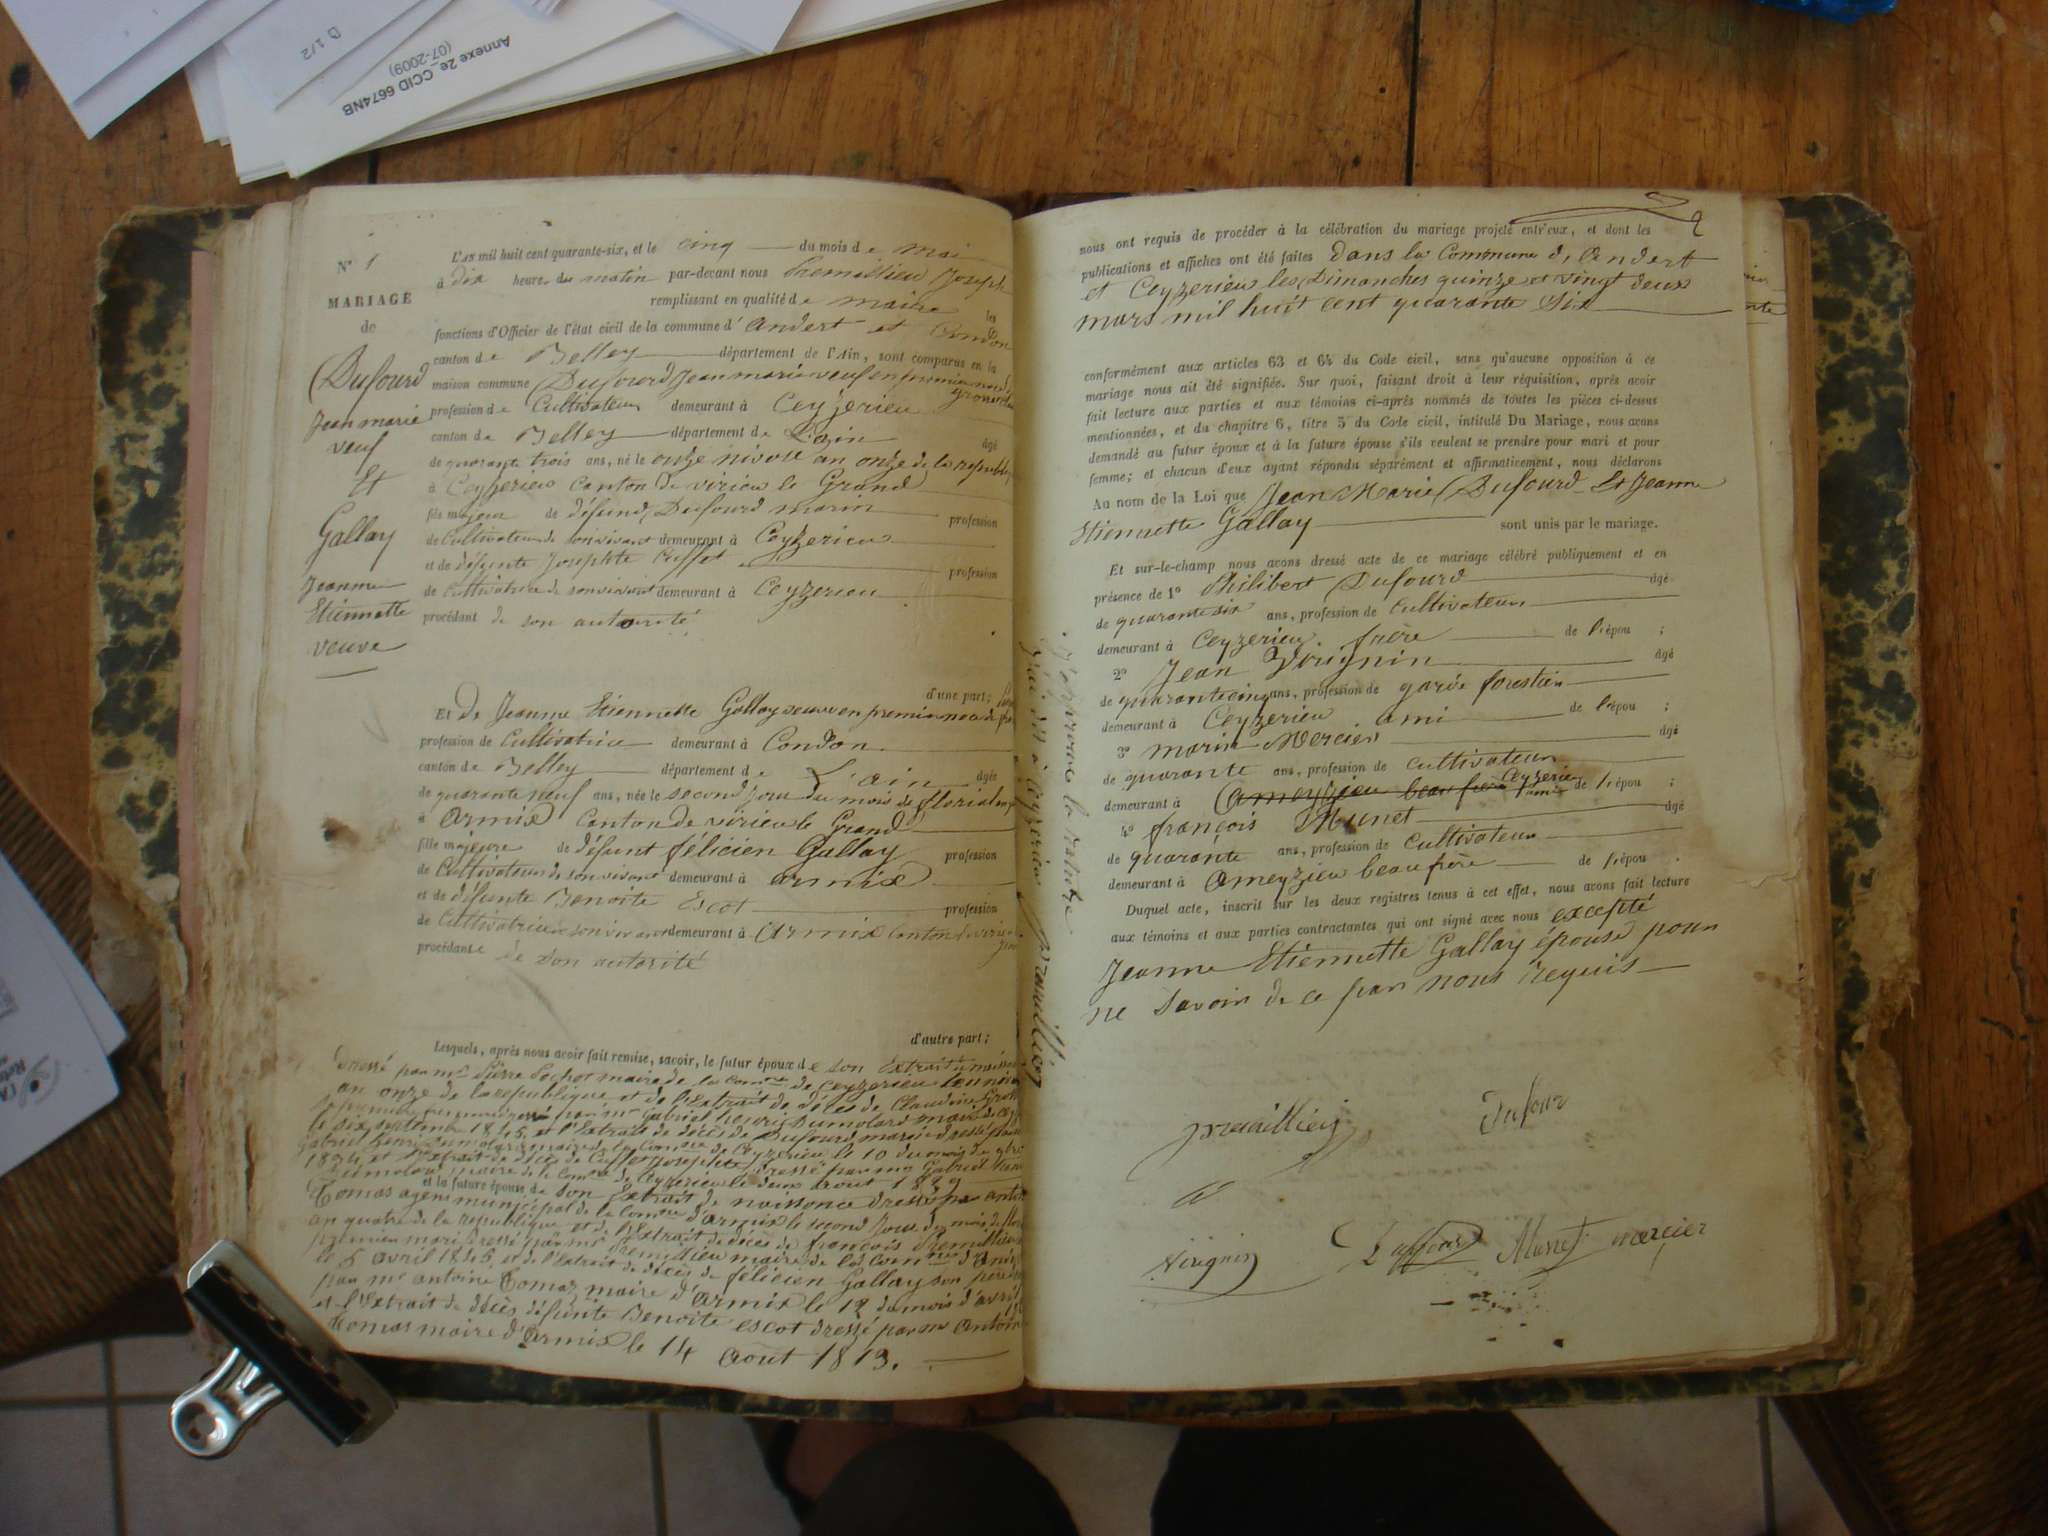 D 1/2
Annexe 2e_CCID 6674NB
(07-2009)
N° 1
MARIAGE
de
Dufourd
Jean marie
veuf
Et
Gallay
Jeanne
Etiennette
veuve
L'an mil huit cent quarante-six, et le cinq du mois de mai
à dix heures du matin par-devant nous Premillieu Joseph
remplissant en qualité de maire les
fonctions d'Officier de l'état civil de la commune d'andert et Condon
canton de Belley département de l'Ain, sont comparus en la
maison commune Dufourd Jean marie veuf en premier
profession de Cultivateur demeurant à Ceyzerieu
canton de Belley département de L'ain âgé
de quarante trois ans, né le onze nivose an onze de la
à Ceyzerieu Canton de virieu le Grand
fils majeur de défunt Dufourd marin profession
de Cultivateur de son vivant demeurant à Ceyzerieu
et de défunte Josephte Cuffet profession
de Cultivatrice de son vivant demeurant à Ceyzerieu
procédant de son autorité
d'une part;
Et de Jeanne Etiennette Gallay veuve en premier noce de
profession de Cultivatrice demeurant à Condon
canton de Belley département de L'ain âgée
de quarante neuf ans, née le second jour du mois de florial
à Armix Canton de virieu le Grand
fille majeure de défunt félicien Gallay profession
de Cultivateur de son vivant demeurant à armix
et de défunte Benoite Escot profession
de Cultivatrice de son vivant demeurant à Armix Canton de virieu
procédante de son autorité
d'autre part;
Lesquels, après nous avoir fait remise, savoir, le futur époux de son Extrait de
dressé par mr Pierre maire de la Comne de Ceyzerieu
an onze de la republique et de l'Extrait de décès de Claudine
par mr Gabriel henri Dumolard maire de
le six septembre 1845, et l'Extrait de décès de Dufourd marin dressé
Gabriel henri Dumolard maire de la Comne de Ceyzerieu le 10 du mois de
1834 et l'Extrait de décès de Cuffet Josephte dressé par mr Gabriel
Dumolard maire de la Comne de Ceyzerieu le deux aout 1829
et la future épouse, de son Extrait de naissance dressé par
Tomas agent municipal de la Comne d'armix le second Jour du mois de
an quatre de la republique et de l'Extrait de décès de françois Premillieu
premier mari dressé par mr Premillieu maire de la Comne
le 5 avril 1845, et de l'Extrait de décès de félicien Gallay son père
par mr antoine Tomas maire d'Armix le 12 du mois d'avril
et l'Extrait de décès défunte Benoite escot dressé par mr Antoine
Tomas maire d'Armix le 14 Aout 1813.
J'approuve la rature
Premillieu
2
nous ont requis de procéder à la célébration du mariage projeté entr'eux, et dont les
publications et affiches ont été faites dans la Commune d'Andert
et Ceyzerieu les Dimanches quinze et vingt deux
mars mil huit cent quarante Six
conformément aux articles 63 et 64 du Code civil, sans qu'aucune opposition à ce
mariage nous ait été signifiée. Sur quoi, faisant droit à leur réquisition, après avoir
fait lecture aux parties et aux témoins ci-après nommés de toutes les pièces ci-dessus
mentionnées, et du chapitre 6, titre 5 du Code civil, intitulé Du Mariage, nous avons
demandé au futur époux et à la future épouse s'ils veulent se prendre pour mari et pour
femme; et chacun d'eux ayant répondu séparément et affirmativement, nous déclarons
Au nom de la Loi que Jean Marie Dufourd Et Jeanne
Etiennette Gallay sont unis par le mariage.
Et sur-le-champ nous avons dressé acte de ce mariage célébré publiquement et en
présence de 1° Philibert Dufourd âgé
de quarante six ans, profession de Cultivateur
demeurant à Ceyzerieu frère de l'épou ;
2° Jean Virignin âgé
de quarante cinq ans, profession de garde forestier
demeurant à Ceyzerieu ami de l'épou ;
3° marin Mercier âgé
de quarante ans, profession de Cultivateur
demeurant à Ameyzieu beau frère Ceyzerieu ami de l'épou ;
4° françois Munet âgé
de quarante ans, profession de Cultivateur
demeurant à Ameyzieu beau frère de l'épou .
Duquel acte, inscrit sur les deux registres tenus à cet effet, nous avons fait lecture
aux témoins et aux parties contractantes qui ont signé avec nous excepté
Jeanne Etiennette Gallay épouse pour
ne savoir de ce par nous requis
premillieu
Dufour
Virignin
Munet
mercier